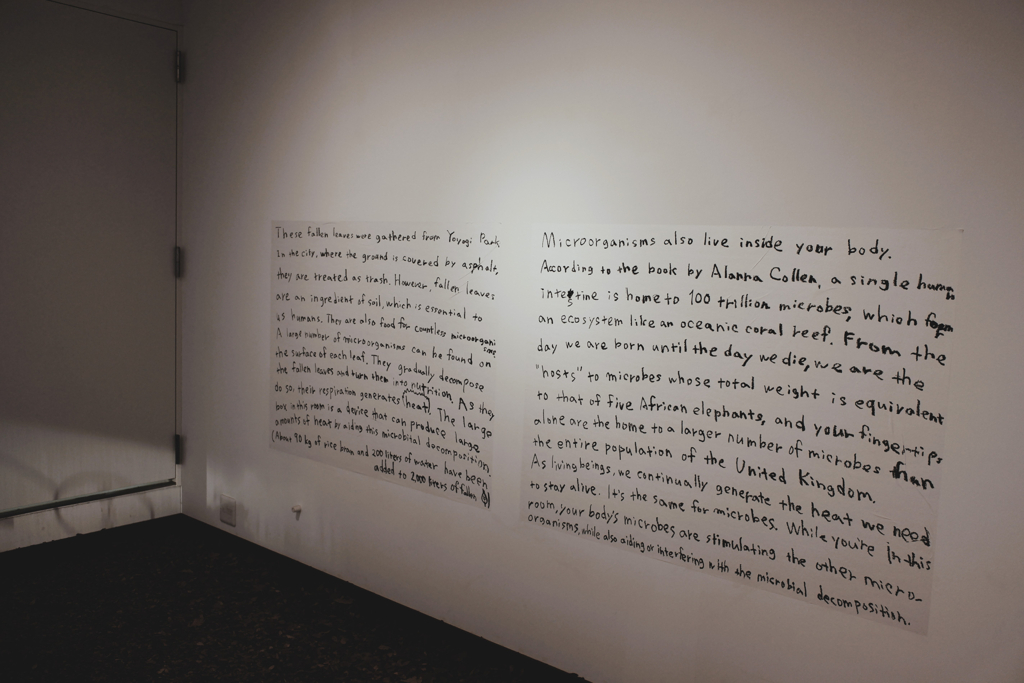 These fallen leaves were gathered from Yoyogi Park
In the city, where the ground is covered by asphalt,
they are treated as trash. However, fallen leaves
are an ingredient of soil, which is essential to
us humans. They are also food for countless microorgani
sms.
A large number of microorganisms can be found on
the surface of each leaf. They gradually decompose
the fallen leaves and turn them into nutrition. As they
do so, their respiration generates (heat). The large
box in this room is a device that can produce large
amounts of heat by aiding this microbital decomposition.
(About 90 kg of rice bran and 200 liters of water have been
added to 2,000 liters of fallen
Microorganisms also live inside your body.
According to the book by Alanna Collen, a single human
intestine is home to 100 trillion microbes, which form
an ecosystem like an oceanic coral reef. From the
day we are born until the day we die, we are the
"hosts" to microbes whose total weight is equivalent
to that of five African elephants, and your fingertips
alone are the home to a larger number of microbes than
the entire population of the United Kingdom.
As living beings, we continually generate the heat we need
to stay alive. It's the same for microbes. While you're in this
room, your body's microbes are stimulating the other micro-
organisms, while also aiding or interfering with the microbial decomposition.